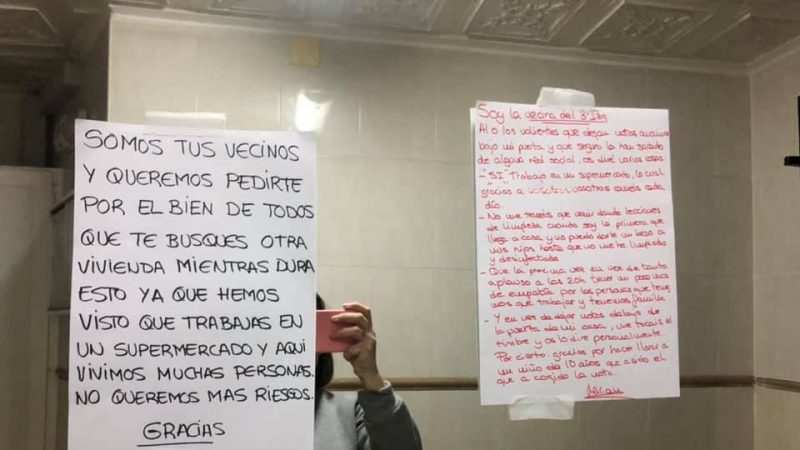 SOMOS TUS VECINOS
Y QUEREMOS PEDIRTE
POR EL BIEN DE TODOS
QUE TE BUSQUES OTRA
VIVIENDA MIENTRAS DURA
ESTO YA QUE HEMOS
VISTO QUE TRABAJAS EN
UN SUPERMERCADO Y AQUI
VIVIMOS MUCHAS PERSONAS.
NO QUEREMOS MAS RIESGOS.
GRACIAS
Soy la vecina del 3º Izq
Al o los valientes que dejan notas
bajo mi puerta y que seguro la han sacado
de alguna red social, os diré varias cosas.
- "SI" Trabajo en un supermercado, lo cual
gracias a vosotros coméis cada
día.
- No me tenéis que venir dando lecciones
de limpieza cuando soy la primera que
llega a casa y no puedo darle un beso a
mis hijos hasta que no me he limpiado
y desinfectado
- Que la próxima vez en vez de tanto
aplauso a las 20h tener un poco mas
de empatía por las personas que tene
mos que trabajar y tenemos familia
- Y en vez de dejar notas debajo de
la puerta de mi casa, me tocais el
timbre y os lo diré personalmente
Por cierto gracias por hacer llorar a
un niño de 10 años que a sido el
que a cogido la nota.